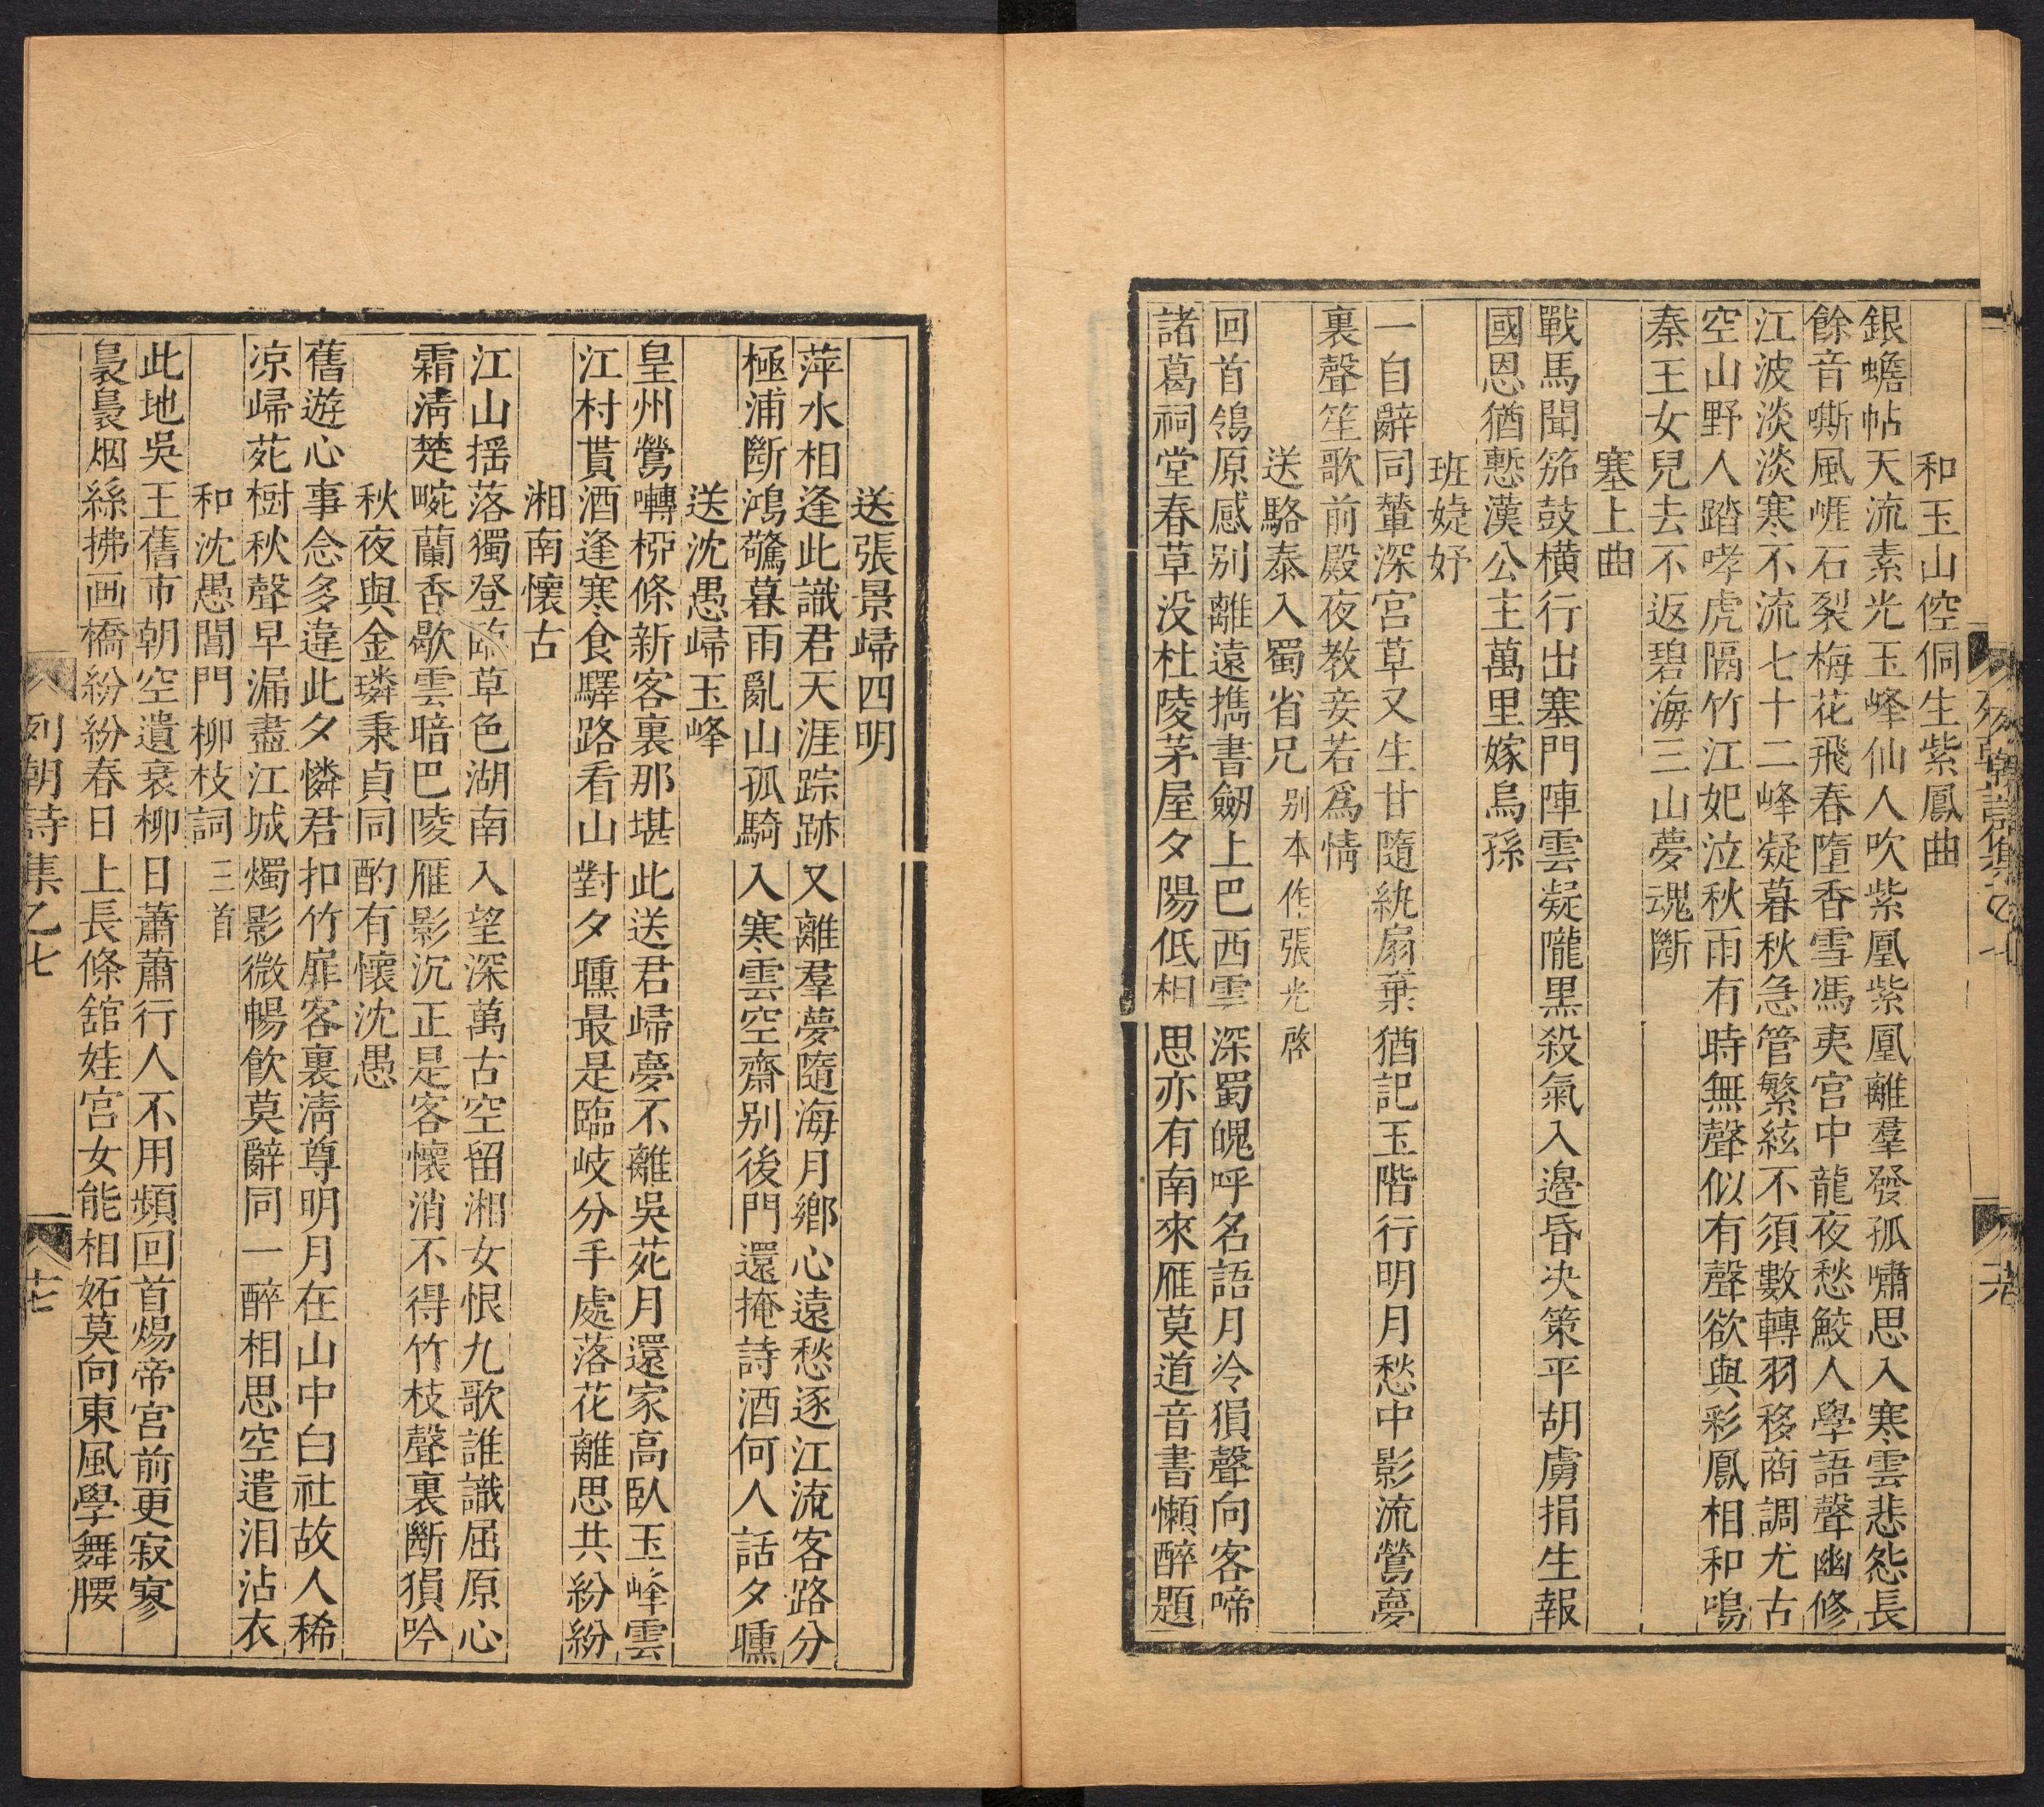 和玉山倥侗生紫鳳曲
銀蟾帖天流素光玉峰仙人吹紫凰紫凰離羣發孤嘯思入寒雲悲怨長
餘音嘶風崕石裂梅花飛春墮香雪馮夷宮中龍夜愁鮫人學語聲幽修
江波淡淡寒不流七十二峰凝暮秋急管繁絃不須數轉羽移商調尤古
空山野人踏哮虎隔竹江妃泣秋雨有時無聲似有聲欲與彩鳳相和鳴
秦王女兒去不返碧海三山夢魂斷
塞上曲
戰馬聞笳鼓橫行出塞門陣雲凝隴黑殺氣入邉昏决策平胡虜捐生報
國恩猶慙漢公主萬里嫁烏孫
班婕妤
一自辭同輦深宮草又生甘隨紈扇棄猶記玉階行明月愁中影流鶯夢
裏聲笙歌前殿夜教妾若爲情
送駱泰入蜀省兄 别本作張光啓
回首鴒原感别離遠攜書劒上巴西雲深蜀魄呼名語月冷猿聲向客啼
諸葛祠堂春草没杜陵茅屋夕陽低相思亦有南來雁莫道音書懶醉題
送張景歸四明
萍水相逢此識君天涯踪跡又離羣夢隨海月鄉心遠愁逐江流客路分
極浦斷鴻驚暮雨亂山孤騎入寒雲空齋别後門還掩詩酒何人話夕曛
送沈愚歸玉峰
皇州鶯囀椏條新客裏那堪此送君歸夢不離吳苑月還家高臥玉峰雲
江村貰酒逢寒食驛路看山對夕曛最是臨岐分手處落花離思共紛紛
湘南懷古
江山揺落獨登臨草色湖南入望深萬古空留湘女恨九歌誰識屈原心
霜淸楚畹蘭香歇雲暗巴陵雁影沉正是客懷消不得竹枝聲裏斷猿吟
秋夜與金璘秉貞同酌有懷沈愚
舊遊心事念多違此夕憐君扣竹扉客裏淸尊明月在山中白社故人稀
凉歸苑樹秋聲早漏盡江城燭影微暢飮莫辭同一醉相思空遣泪沾衣
和沈愚閶門柳枝詞 三首
此地吳王舊市朝空遺衰柳日蕭蕭行人不用頻回首煬帝宮前更寂寥
裊裊烟絲拂画橋紛紛春日上長條舘娃宮女能相妬莫向東風學舞腰
列朝詩集乙七